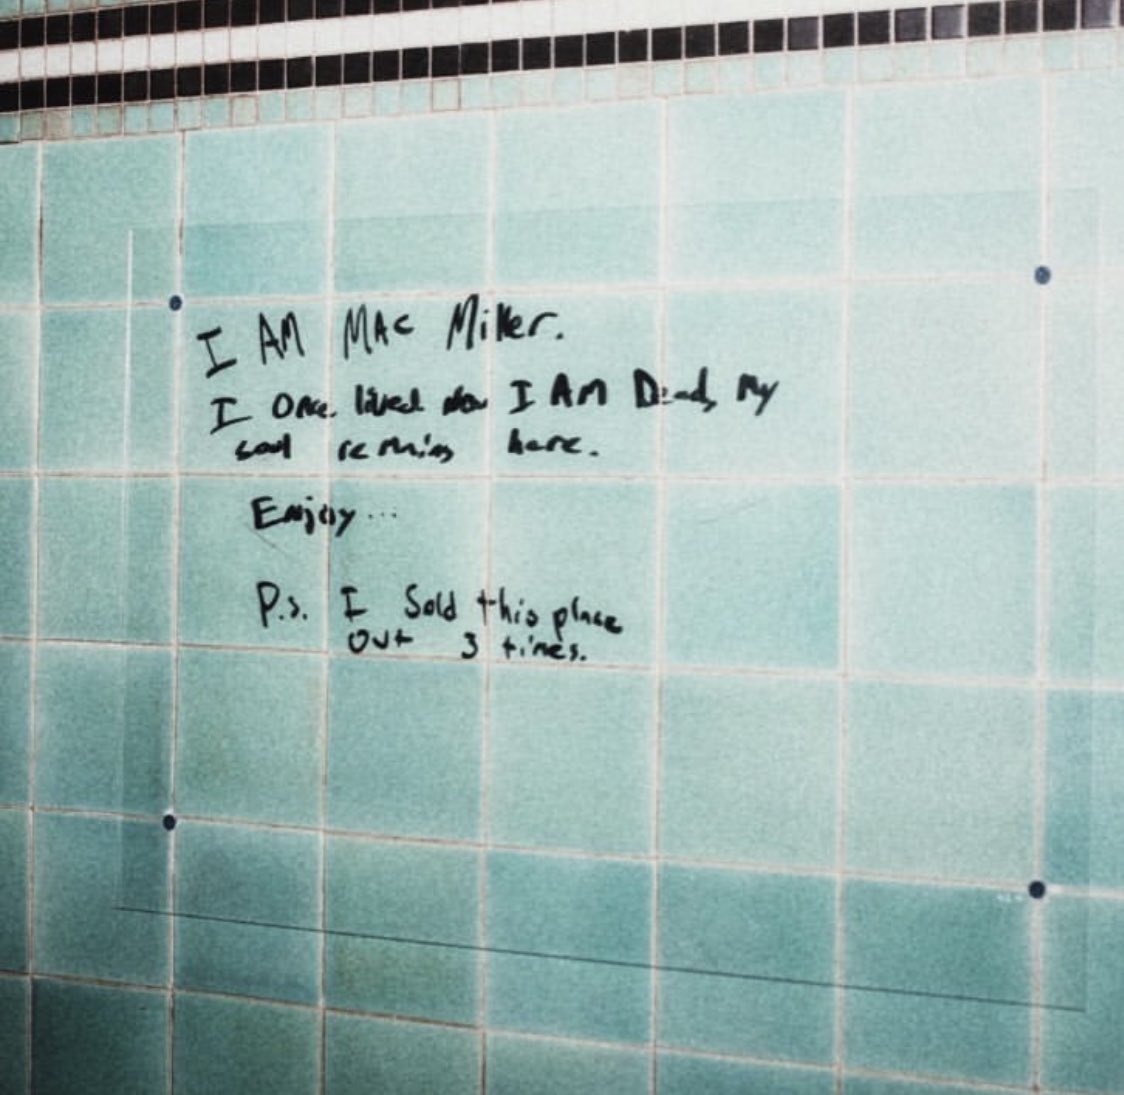 I AM MAC Miller.
I Once lived now I AM Dead, My
soul remains here.
Enjoy...
P.s. I Sold this place
OUt 3 times.